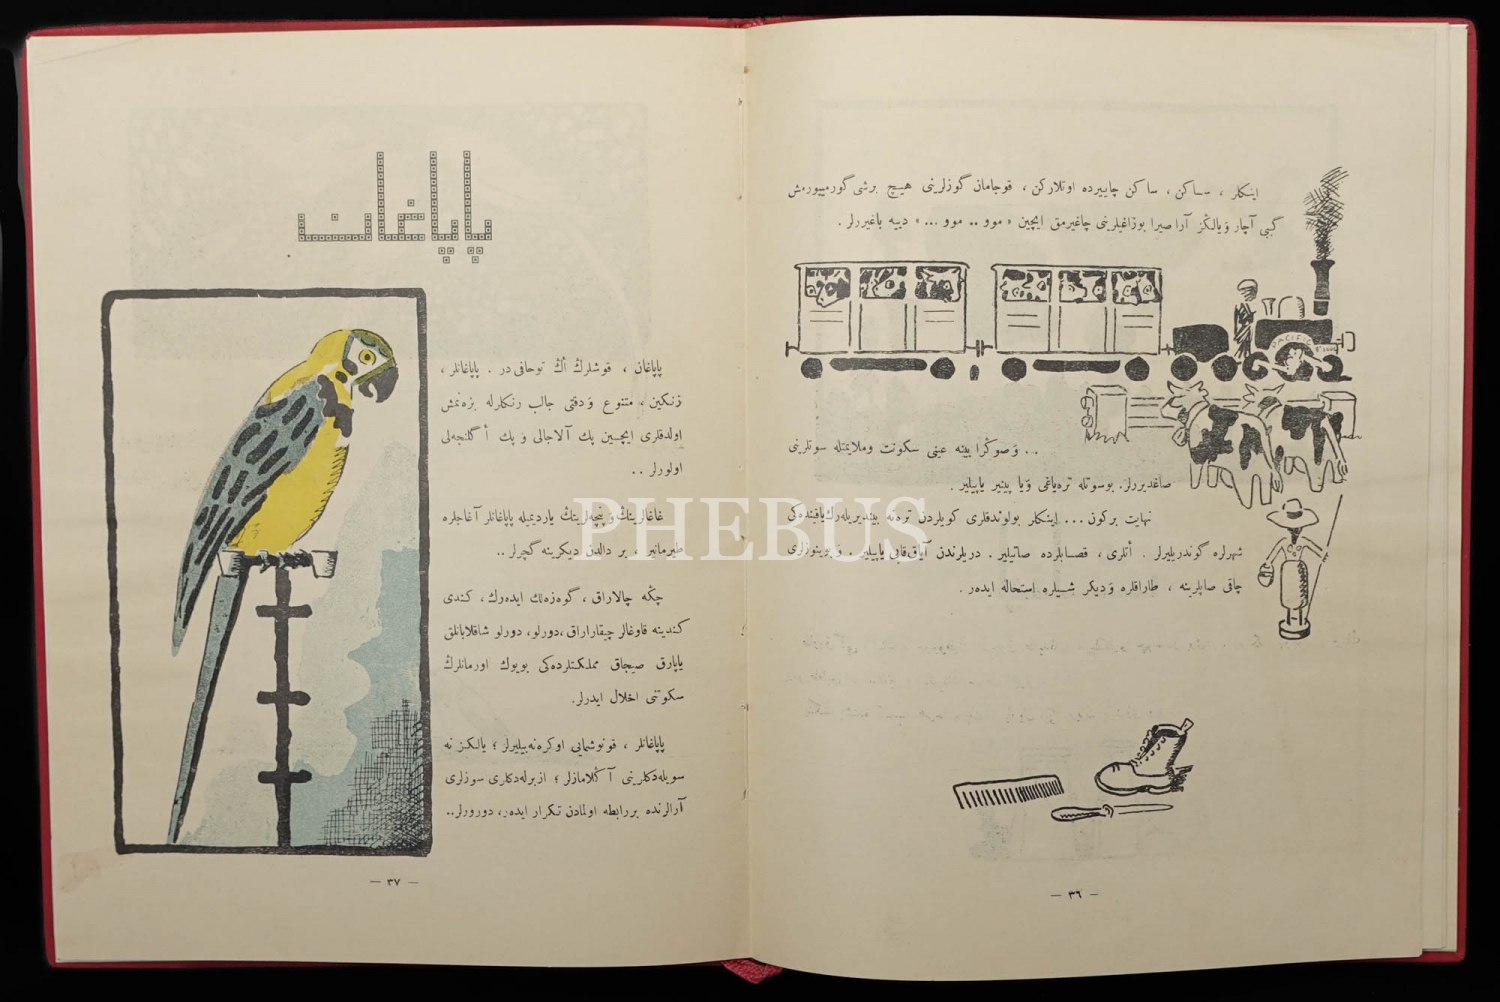 اینكلر ، ساكن ، ساكن چاییرده اوتلاركن ، قوجامان گوزلرینی هیچ برشی گورمییورمش
گبی آچار وَیالڭز آرا صیرا بوزاغیلرینی چاغیرمق ایچین « موو .. موو ... » دییه باغیررلر .
PACIFIC
.. وَصوڭرا یینه عینی سكونت وملایمتله سوتلرینی
صاغدیررلر. بوسوتله تره‌یاغی وَیا پینیر یاپیلیر .
نهایت بركون ... اینكلر بولوندقلری كویلردن ترەنه بیندیریله‌رك یاقینده‌كی
شهرلره گوندریلیرلر . أتلری ، قصابلرده صاتیلیر . دریلرندن آیاق‌قابی یاپیلیر . وَبوینوزلری
چاقی صاپلرینه ، طاراقلره وَدیكر شیلره استحاله ایده‌ر .
— ٣٦ —
پاپاغان
پاپاغان ، قوشلرڭ أڭ توحافی در . پاپاغانلر ،
زنكین ، متنوع وَدقتی جالب رنكلرله بزه‌نمش
اولدقلری ایچین پك آلاجالی وَ پك أگلنجه‌لی
اولورلر ..
غاغالرینڭ وَ پنچه‌لرینڭ یاردیمیله پاپاغانلر آغاجلره
طیرمانیر ، بر دالدن دیكرینه گچرلر ..
چڭه چالاراق ، گوه‌زه‌لك ایده‌رك ، كندی
كندینه قاوغالر چیقاراراق ، دورلو، دورلو شاقلابانلق
یاپارق صیجاق مملكتلرده‌كی بویوك اورمانلرڭ
سكوتنی اخلال ایدرلر.
پاپاغانلر ، قونوشمایی اوكره‌نه‌بیلیرلر ؛ یالكز نه
سویله‌دكلرینی آڭلامازلر ؛ ازبرله‌دكلری سوزلری
آرالرنده بررابطه اولمادن تكرار ایده‌ر، دورورلر..
— ٣٧ —
PHEBUS